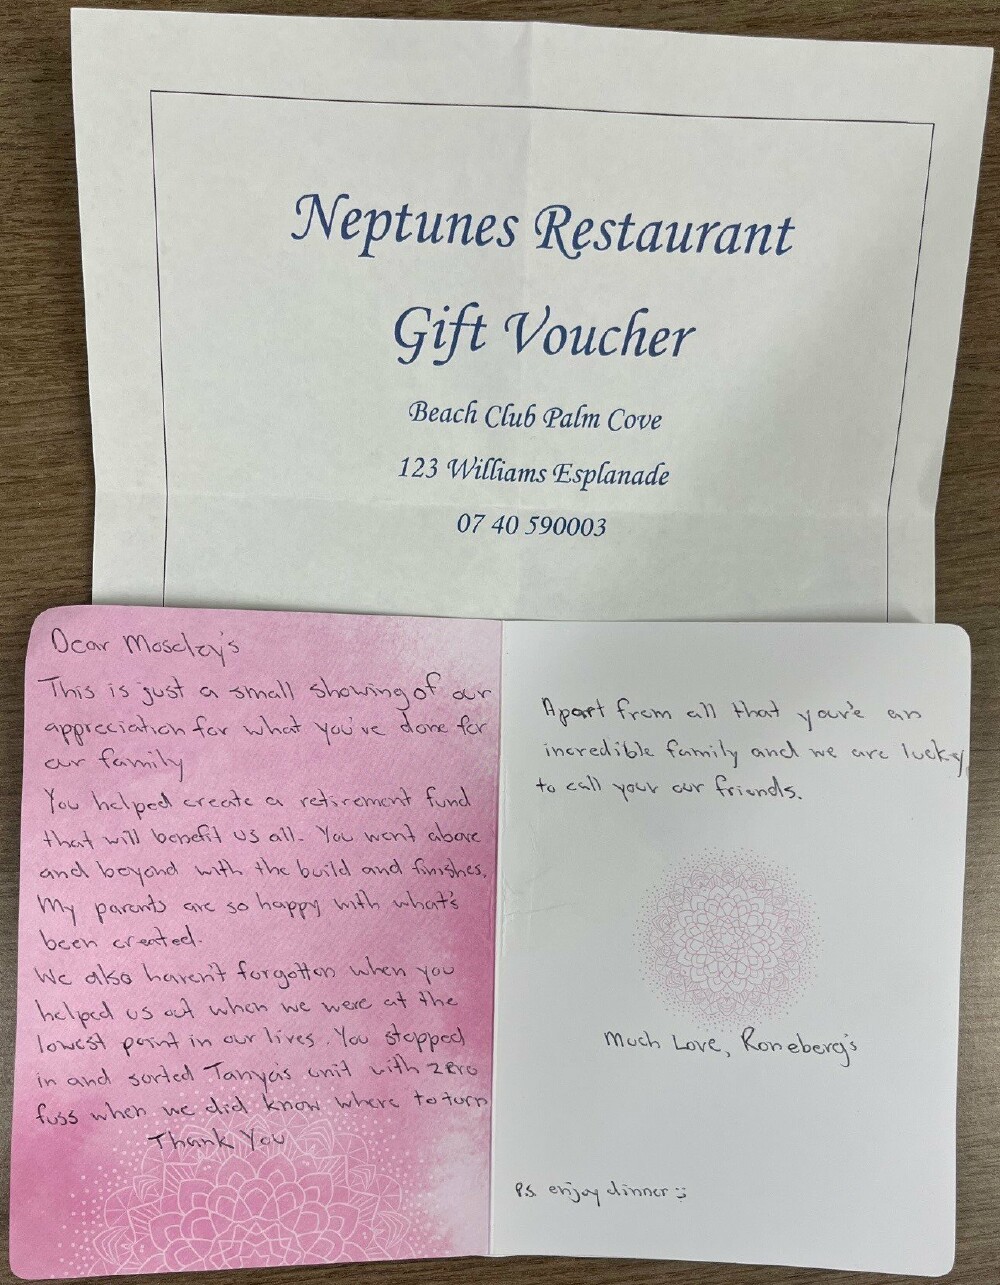 Neptunes Restaurant
Gift Voucher
Beach Club Palm Cove
123 Williams Esplanade
07 40 590003
Dear Moseley's
This is just a small showing of our
appreciation for what you've done for
our family
You helped create a retirement fund
that will benefit us all. You went above
and beyond with the build and finishes.
My parents are so happy with what's
been created.
We also haven't forgotten when you
helped us out when we were at the
lowest point in our lives. You stepped
in and sorted Tanya's unit with zero
fuss when we did know where to turn
Thank You
Apart from all that your'e an
incredible family and we are lucky
to call your our friends.
Much Love, Roneberg's
P.S. enjoy dinner :)